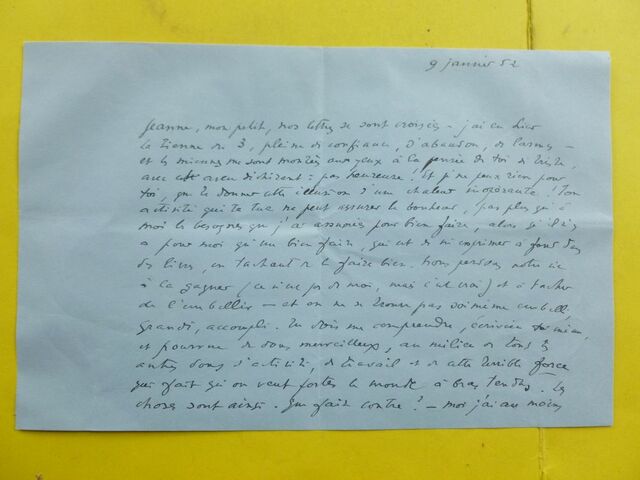 9 janvier 52
Jeanne, mon petit, nos lettres se sont croisées - j'ai eu hier
la tienne du 3, pleine de confiance, d'abandon, de larmes -
et les miennes me sont montées aux yeux à la pensée de toi si triste,
avec cet aveu déchirant : pas heureuse ! Et je ne peux rien pour
toi, que te donner cette illusion d'une chaleur inopérante ! Ton
activité qui te tue ne peut assurer le bonheur, pas plus qu'à
moi la besogne que j'ai assumée pour bien faire, alors qu'il n'y
a pour moi qu'un bien faire, qui est de m'exprimer à fond dans
des livres, en tachant de le faire bien. Nous perdons notre vie
à la gagner (ce n'est pas de moi, mais c'est vrai) et à tacher
de l'embellir - et on ne se trouve pas soi-même embelli,
grandi, accompli. Tu dois me comprendre, écrivain toi-même,
et pourvue de dons merveilleux, au milieu de tous tes
autres dons d'activité, de travail et de cette terrible force
qui fait qu'on veut porter le monde à bras tendus. Les
choses sont ainsi. Que faire contre ? - moi j'ai au moins